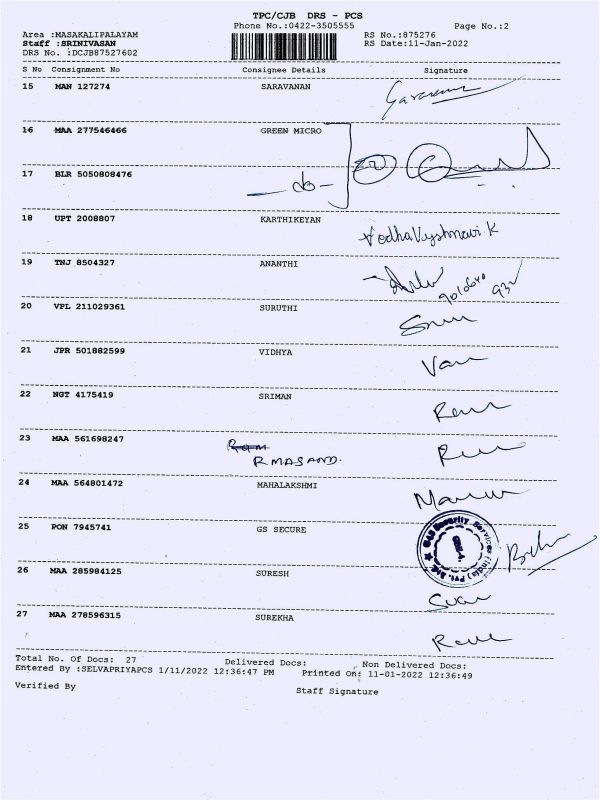 TPC/CJB DRS - PCS
Phone No.:0422-3505555 Page No.:2
Area :MASAKALIPALAYAM RS No.:875276
Staff :SRINIVASAN RS Date:11-Jan-2022
DRS No. :DCJB87527602
S No Consignment No Consignee Details Signature
15 MAN 127274 SARAVANAN
16 MAA 277546466 GREEN MICRO
17 BLR 5050808476 - do -
18 UPT 2008807 KARTHIKEYAN
19 TNJ 8504327 ANANTHI
20 VPL 211029361 SURUTHI
21 JPR 501882599 VIDHYA
22 NGT 4175419 SRIMAN
23 MAA 561698247
R MASAND.
24 MAA 564801472 MAHALAKSHMI
25 PON 7945741 GS SECURE
26 MAA 285984125 SURESH
27 MAA 278596315 SUREKHA
Total No. Of Docs: 27 Delivered Docs: Non Delivered Docs:
Entered By :SELVAPRIYAPCS 1/11/2022 12:36:47 PM Printed On: 11-01-2022 12:36:49
Verified By Staff Signature